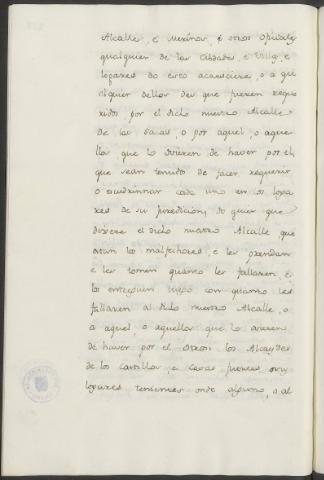 Alcalle, e merinos, é otros oficiales
qualquier de las Cibdades, e Villas, e
logares do esto acaesciere, o a qua
lquier dellos des que fueren reque
ridos por el dicho nuestro Alcalle
de las sacas, o por aquel, o aque
llos, que lo ovieren de haver por el,
que sean tenudos de facer requerir
o escudrinnar cada uno en los loga
res de su juredicion, do quier que
dixere el dicho nuestro Alcalle que
estan los malfechores, e les prendan
e les tomen quanto les fallaren, é
los entreguen luego con quanto les
fallaren al dicho nuestro Alcalle, o
a aquel, o aquellos que lo ovieren
de haver por el. Otrosi los Alcaydes
de los castillos, e casas fuertes, o
logares tenientes onde algunos, o al